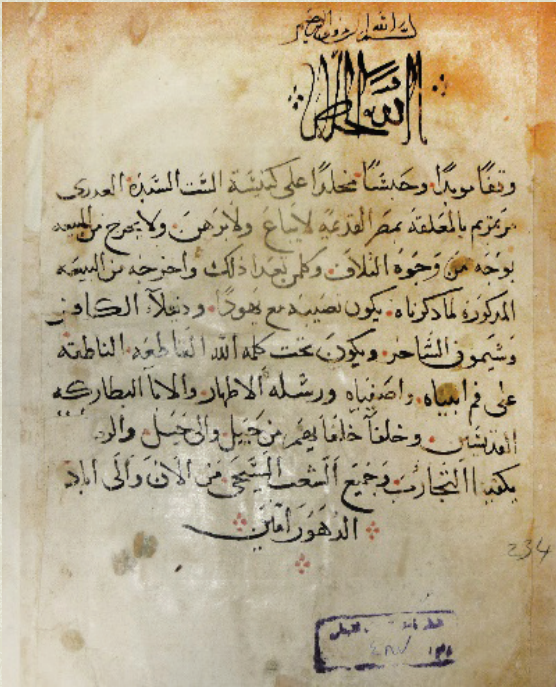 بسم الله الرحمن الرحيم
الله
وقفًا موبدًا وحبسًا مخلدًا على كنيسة الست السيدة العدرى
مرتمريم بالمعلقه بمصر القديمه لا يباع ولا يرهن ولا يخرج من البيعه
بوجه من وجوه التلاف وكلمن تعدا ذلك واخرجه من البيعه
المدكوره لما دكرناه يكون نصيبه مع يهودا ودقيلا الكافر
وسيمون الساحر ويكون تحت كلمه الله القاطعه الناطقه
على فم انبياه واصفياه ورسله الاطهار والابا البطاركه
القديسين وخلفا خلفايهم من جيل والى جيل
وجميع الشعب المسيحى من الان والى اباد
الدهور امين
234